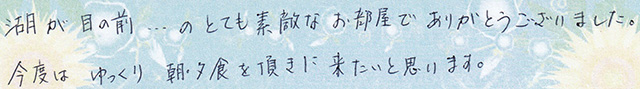 湖が目の前…のとても素敵なお部屋でありがとうございました。
今度は ゆっくり 朝・夕食を頂きに来たいと思います。